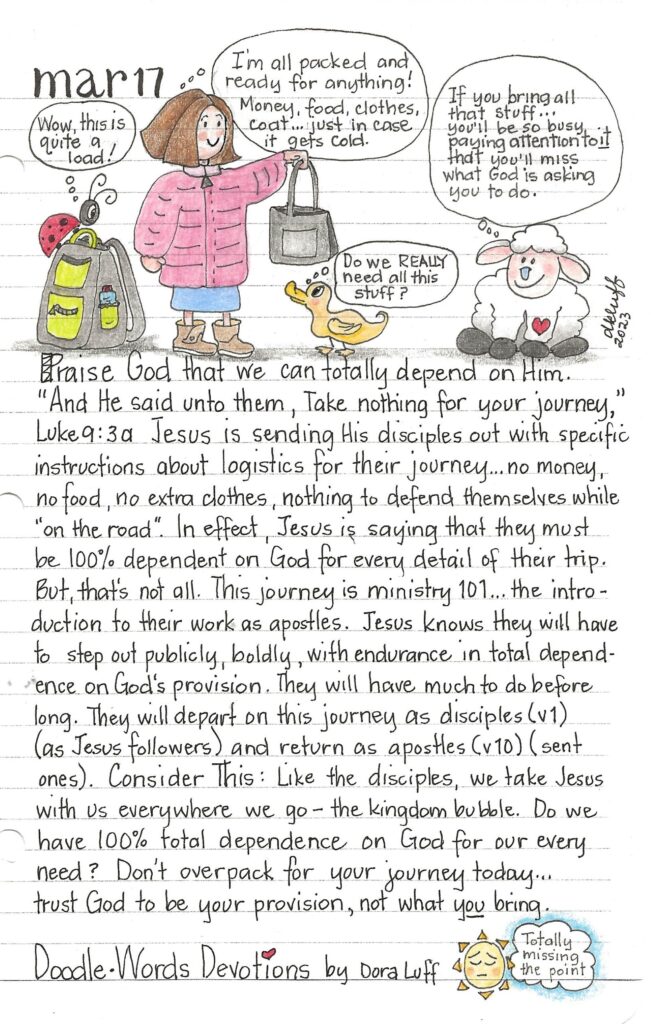 mar 17
I'm all packed and
ready for anything!
Money, food, clothes,
coat... just in case
it gets cold.
Wow, this is
quite a
load!
If you bring all
that stuff...
you'll be so busy
paying attention to it
that you'll miss
what God is asking
you to do.
Do we REALLY
need all this
stuff?
dkluff
2023
Praise God that we can totally depend on Him.
"And He said unto them, Take nothing for your journey,"
Luke 9:3a Jesus is sending His disciples out with specific
instructions about logistics for their journey... no money,
no food, no extra clothes, nothing to defend themselves while
"on the road". In effect, Jesus is saying that they must
be 100% dependent on God for every detail of their trip.
But, that's not all. This journey is ministry 101... the intro-
duction to their work as apostles. Jesus knows they will have
to step out publicly, boldly, with endurance in total depend-
ence on God's provision. They will have much to do before
long. They will depart on this journey as disciples (v1)
(as Jesus followers) and return as apostles (v10) (sent
ones). Consider This: Like the disciples, we take Jesus
with us everywhere we go - the kingdom bubble. Do we
have 100% total dependence on God for our every
need? Don't overpack for your journey today...
trust God to be your provision, not what you bring.
Doodle•Words Devotions by Dora Luff
Totally
missing
the point